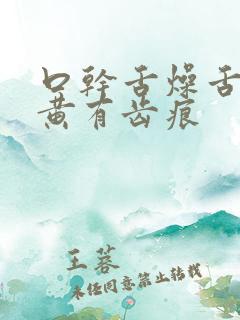 口幹舌燥舌
黄有齿痕
王蓉
未经同意禁止转载